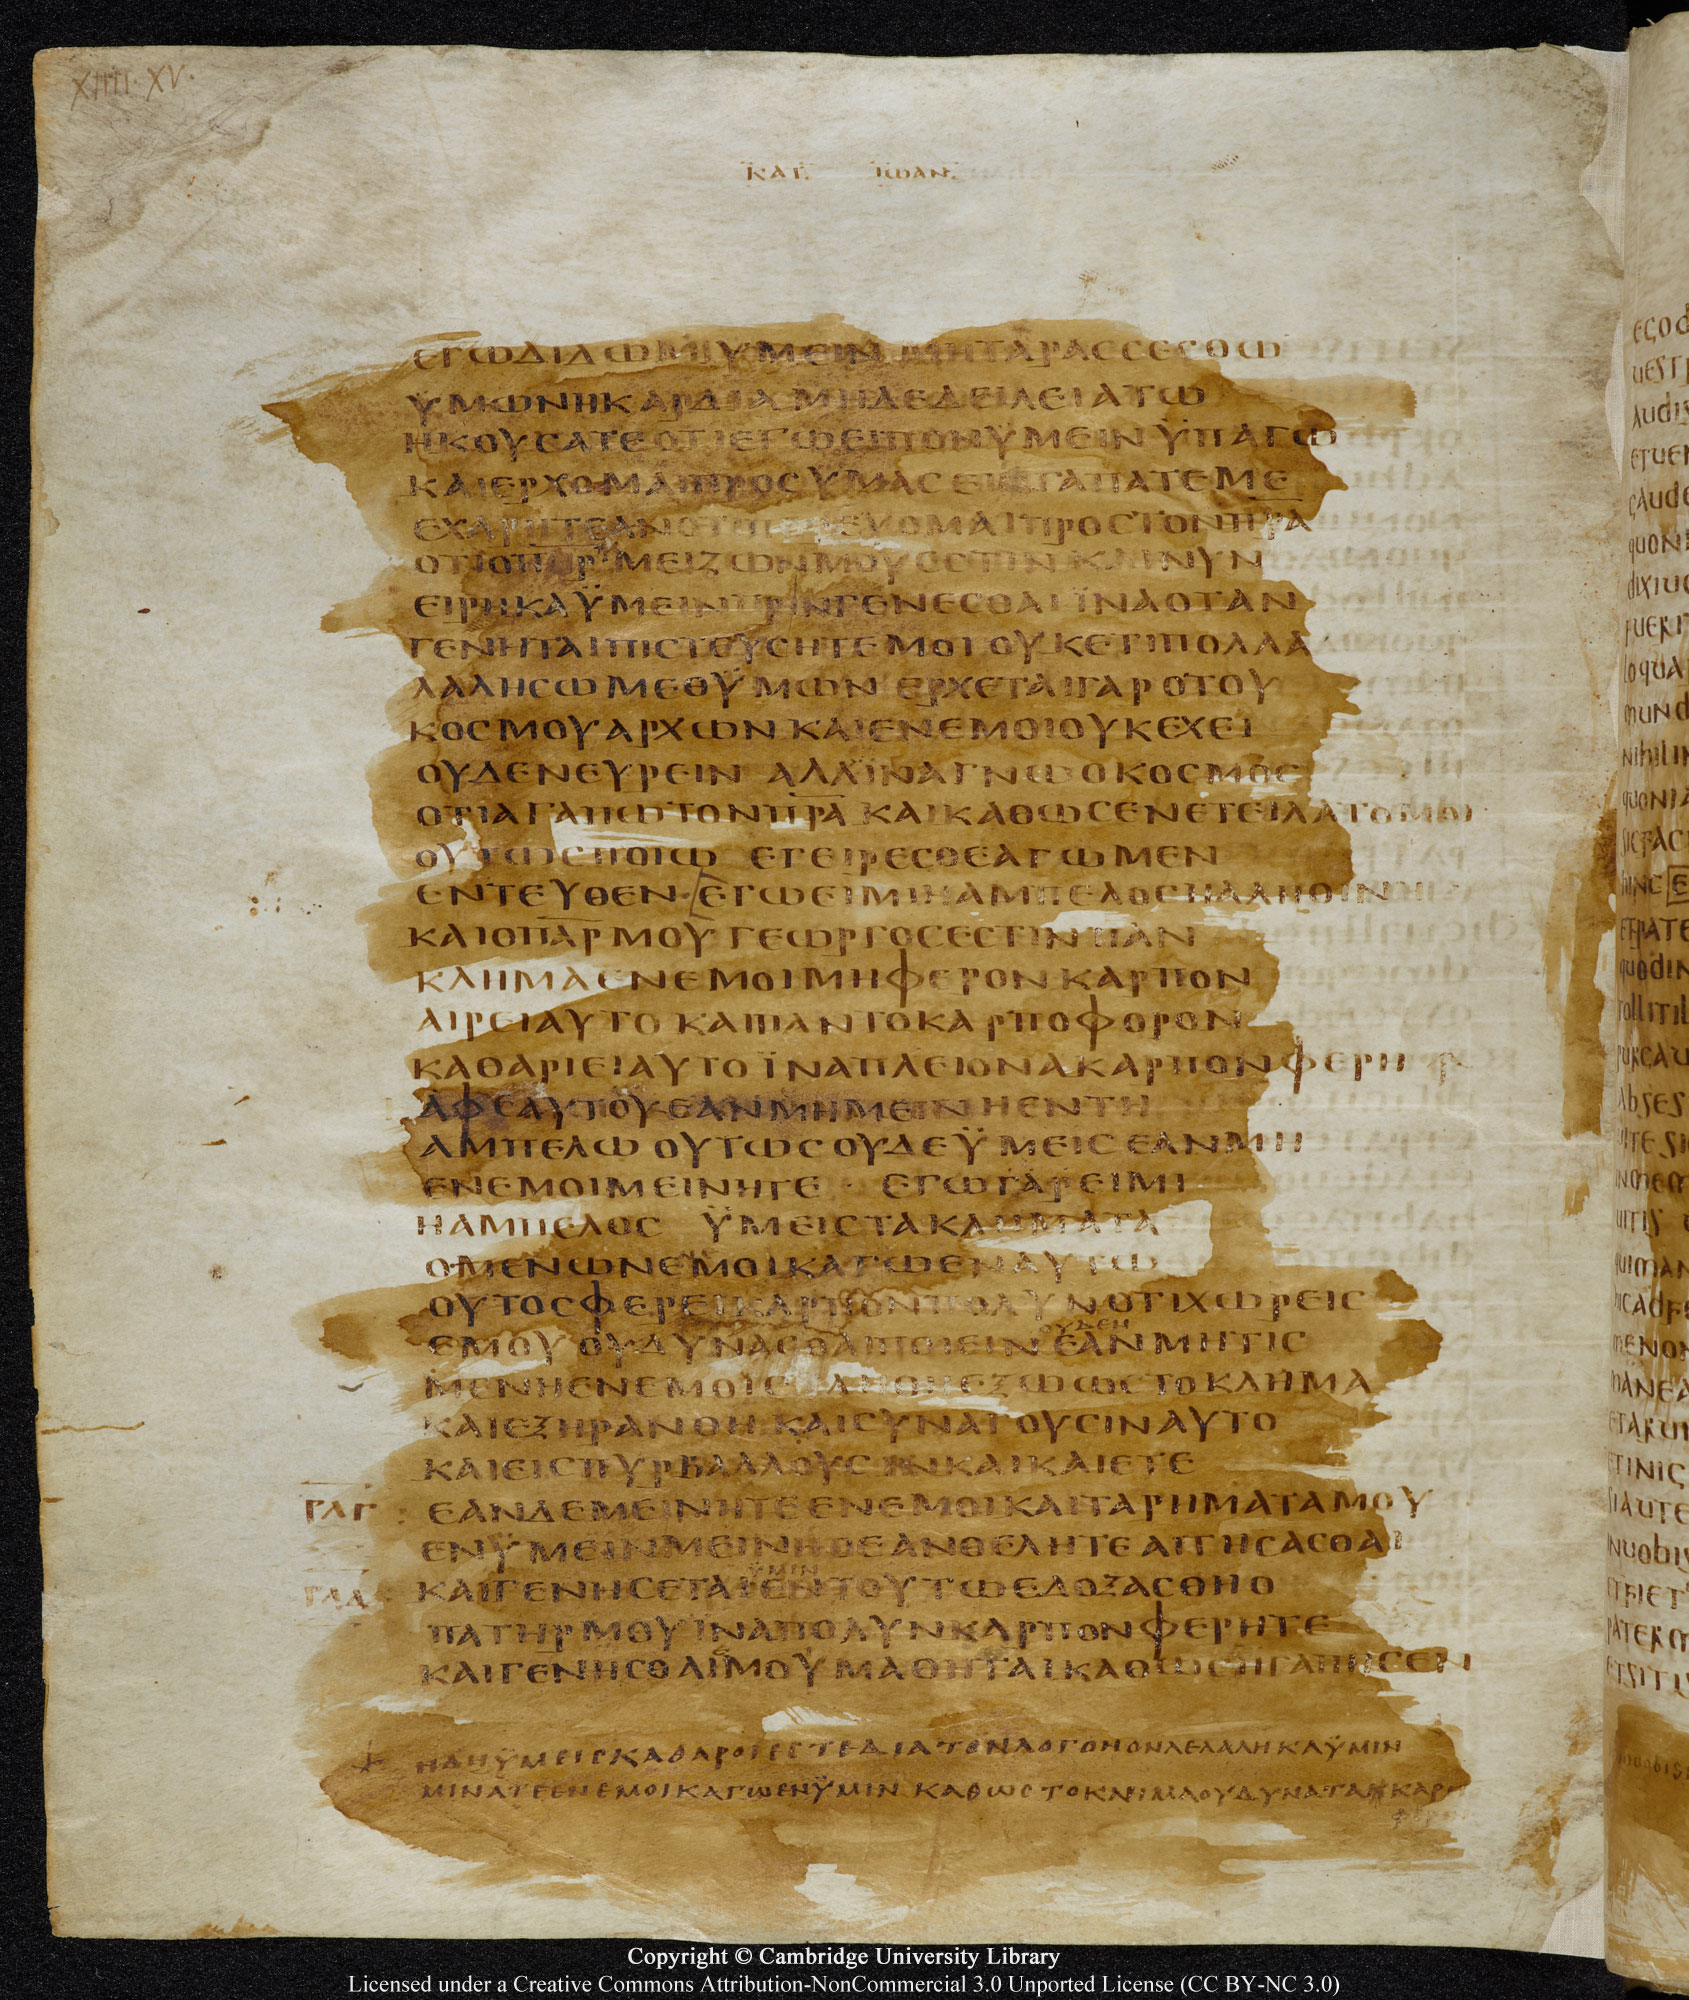 XIIII · XV ·
ΚΑΤ. ΙΩΑΝ.
ΕΓΩΔΙΔΩΜΙΫΜΕΙΝ ΜΗΤΑΡΑΣΣΕΣΘΩ
ΫΜΩΝΗΚΑΡΔΙΑΜΗΔΕΔΕΙΛΕΙΑΤΩ
ΗΚΟΥΣΑΤΕΟΤΙΕΓΩΕΙΠΟΝΫΜΕΙΝΫΠΑΓΩ
ΚΑΙΕΡΧΟΜΑΙΠΡΟΣΥΜΑΣ ΕΙΗΓΑΠΑΤΕΜΕ
ΕΧΑΡΗΤΕΑΝΟΤΙΠΟΡΕΥΟΜΑΙΠΡΟΣΤΟΝΠΡΑ
ΟΤΙΟΠΗΡΜΕΙΖΩΝΜΟΥΕΣΤΙΝΚΑΙΝΥΝ
ΕΙΡΗΚΑΫΜΕΙΝΠΡΙΝΓΕΝΕΣΘΑΙΪΝΑΟΤΑΝ
ΓΕΝΗΤΑΙΠΙΣΤΕΥΣΗΤΕΜΟΙ ΟΥΚΕΤΙΠΟΛΛΑ
ΛΑΛΗΣΩΜΕΘΫΜΩΝ ΕΡΧΕΤΑΙΓΑΡΟΤΟΥ
ΚΟΣΜΟΥΑΡΧΩΝ ΚΑΙΕΝΕΜΟΙΟΥΚΕΧΕΙ
ΟΥΔΕΝΕΥΡΕΙΝ ΑΛΛΪΝΑΓΝΩΟΚΟΣΜΟΣ
ΟΤΙΑΓΑΠΩΤΟΝΠΡΑ ΚΑΙΚΑΘΩΣΕΝΕΤΕΙΛΑΤΟΜΟΙ
ΟΥΤΩΣΠΟΙΩ ΕΓΕΙΡΕΣΘΕΑΓΩΜΕΝ
ΕΝΤΕΥΘΕΝ·ΕΓΩΕΙΜΙΗΑΜΠΕΛΟΣΗΑΛΗΘΙΝΗ
ΚΑΙΟΠΑΡΜΟΥΓΕΩΡΓΟΣΕΣΤΙΝΠΑΝ
ΚΛΗΜΑΕΝΕΜΟΙΜΗΦΕΡΟΝΚΑΡΠΟΝ
ΑΙΡΕΙΑΥΤΟ ΚΑΙΠΑΝΤΟΚΑΡΠΟΦΟΡΟΝ
ΚΑΘΑΡΙΕΙΑΥΤΟΪΝΑΠΛΕΙΟΝΑΚΑΡΠΟΝΦΕΡΗ
ΑΦΕΑΥΤΟΥΕΑΝΜΗΜΕΙΝΗΕΝΤΗ
ΑΜΠΕΛΩ ΟΥΤΩΣΟΥΔΕΫΜΕΙΣΕΑΝΜΗ
ΕΝΕΜΟΙΜΕΙΝΗΤΕ · ΕΓΩΓΑΡΕΙΜΙ
ΗΑΜΠΕΛΟΣ ΫΜΕΙΣΤΑΚΛΗΜΑΤΑ
ΟΜΕΝΩΝΕΜΟΙΚΑΓΩΕΝΑΥΤΩ
ΟΥΤΟΣΦΕΡΕΙΚΑΡΠΟΝΠΟΛΥΝΟΤΙΧΩΡΕΙΣ
ΟΥΔΕΝ
ΕΜΟΥ ΟΥΔΥΝΑΣΘΑΙΠΟΙΕΙΝ ΕΑΝΜΗΤΙΣ
ΜΕΝΗΕΝΕΜΟΙΕΒΛΗΘΗΕΞΩΩΣΤΟΚΛΗΜΑ
ΚΑΙΕΞΗΡΑΝΘΗ ΚΑΙΣΥΝΑΓΟΥΣΙΝΑΥΤΟ
ΚΑΙΕΙΣΠΥΡΒΑΛΛΟΥΣΙΝΚΑΙΚΑΙΕΤΕ
ΕΑΝΔΕΜΕΙΝΗΤΕΕΝΕΜΟΙΚΑΙΤΑΡΗΜΑΤΑΜΟΥ
ΕΝΫΜΕΙΝΜΕΙΝΗΟΕΑΝΘΕΛΗΤΕΑΙΤΗΣΑΣΘΑΙ
ΫΜΙΝ
ΚΑΙΓΕΝΗΣΕΤΑΙΕΝΤΟΥΤΩΕΔΟΞΑΣΘΗΟ
ΠΑΤΗΡΜΟΥΪΝΑΠΟΛΥΝΚΑΡΠΟΝΦΕΡΗΤΕ
ΚΑΙΓΕΝΗΣΘΑΙΜΟΥΜΑΘΗΤΑΙΚΑΘΩΣΗΓΑΠΗΣΕΝ
ΗΔΗΫΜΕΙΣΚΑΘΑΡΟΙΕΣΤΕΔΙΑΤΟΝΛΟΓΟΝΟΝΛΕΛΑΛΗΚΑΫΜΙΝ
ΜΙΝΑΤΕΕΝΕΜΟΙΚΑΓΩΕΝΫΜΙΝ ΚΑΘΩΣΤΟΚΛΗΜΑΟΥΔΥΝΑΤΑΙΚΑΡ
Copyright © Cambridge University Library
Licensed under a Creative Commons Attribution-NonCommercial 3.0 Unported License (CC BY-NC 3.0)